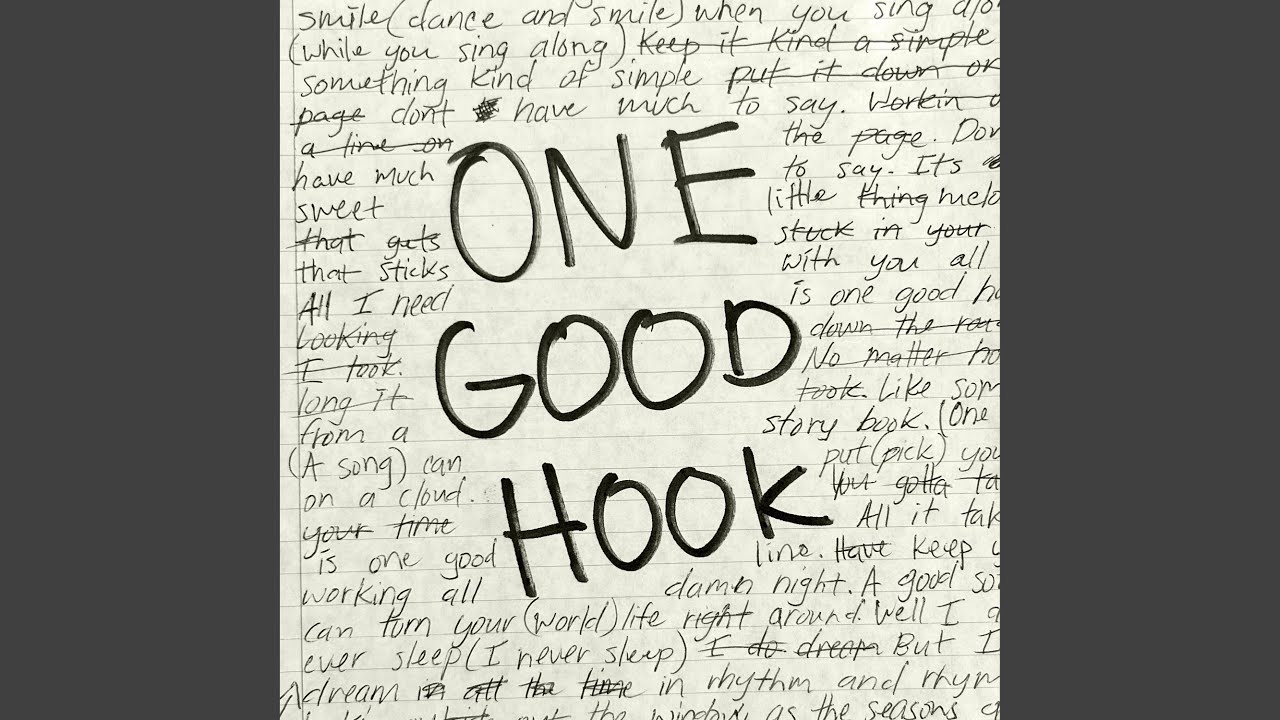 smile (dance and smile) when you sing alon
(while you sing along) Keep it kind a simple
something kind of simple put it down on
page dont have much to say. Workin o
a line on the page. Don
have much to say. Its a
sweet little thing melo
that gets stuck in your
that sticks with you all
All I need is one good ho
Looking down the roa
I took. No matter ho
long it took. Like som
from a story book. (One
(A song) can put (pick) you
on a cloud. You gotta ta
your time All it tak
is one good line. Have keep y
working all damn night. A good so
can turn your (world) life right around. Well I d
ever sleep (I never sleep) I do dream But I
dream in all the time in rhythm and rhym
out the window as the seasons
ONE
GOOD
HOOK